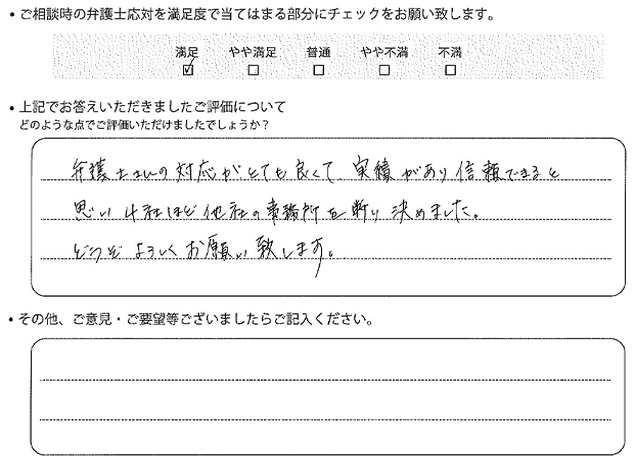 • ご相談時の弁護士応対を満足度で当てはまる部分にチェックをお願い致します。
満足 やや満足 普通 やや不満 不満
☑ □ □ □ □
• 上記でお答えいただきましたご評価について
どのような点でご評価いただけましたでしょうか？
弁護士さんの対応が、とても良くて、実績があり信頼できると
思い4社ほど他社の事務所を断り決めました。
どうぞよろしくお願い致します。
• その他、ご意見・ご要望等ございましたらご記入ください。